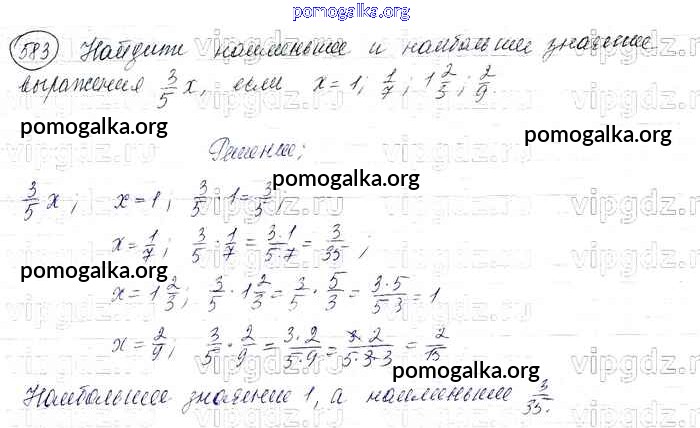 pomogalka.org
583 Найдите наименьшее и наибольшее значение
выражения 3/5 x, если x = 1; 1/7; 1 2/3; 2/9.
pomogalka.org pomogalka.org
Решение;
pomogalka.org
3/5 x; x = 1; 3/5 · 1 = 3/5;
x = 1/7; 3/5 · 1/7 = 3·1/5·7 = 3/35;
pomogalka.org pomogalka.org
x = 1 2/3; 3/5 · 1 2/3 = 3/5 · 5/3 = 3·5/5 3 = 1
x = 2/9; 3/5 · 2/9 = 3·2/5·9 = 3·2/5·3·3 = 2/15
pomogalka.org
Наибольшее значение 1, а наименьшее 3/35.
pomogalka.org
vipgdz.ru